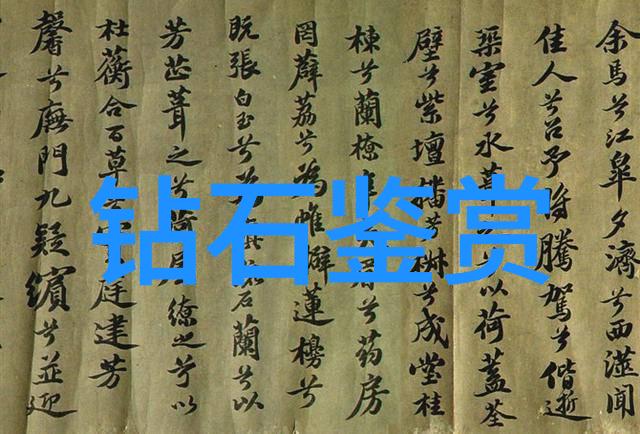 余馬兮江皋夕濟兮西澨聞
佳人兮召予將騰駕兮偕逝
築室兮水葺兮以荷蓋荃
壁兮紫壇播椒兮成堂桂
棟兮蘭橑兮葯房
罔薜荔兮為帷擗蓮櫋兮
既張白玉兮為石蘭兮以
芳芷葺之兮荷屋繚之兮以
杜蘅合百草兮庭建芳
馨兮廡門九疑繽兮並迎
钻石鉴赏